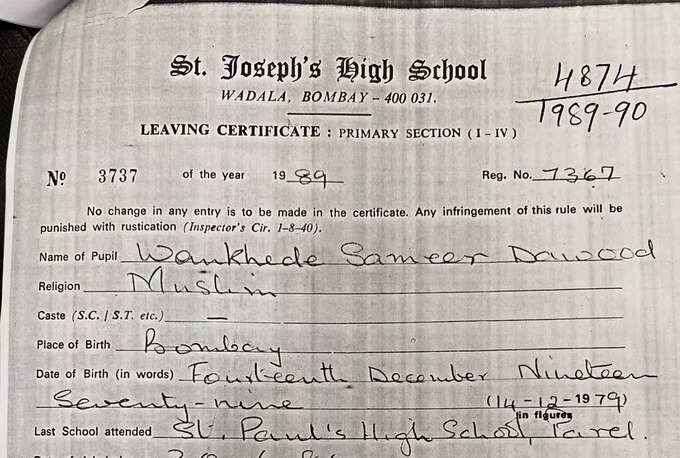 St. Joseph's High School
WADALA, BOMBAY – 400 031.
4874
1989-90
LEAVING CERTIFICATE : PRIMARY SECTION ( I – IV )
Nº 3737 of the year 1989 Reg. No. 7367
No change in any entry is to be made in the certificate. Any infringement of this rule will be
punished with rustication (Inspector's Cir. 1–8–40).
Name of Pupil Wankhede Sameer Dawood
Religion Muslim
Caste (S.C. / S.T. etc.) —
Place of Birth Bombay
Date of Birth (in words) Fourteenth December Nineteen
Seventy-nine (14-12-1979)
in figures
Last School attended St. Paul's High School, Parel.